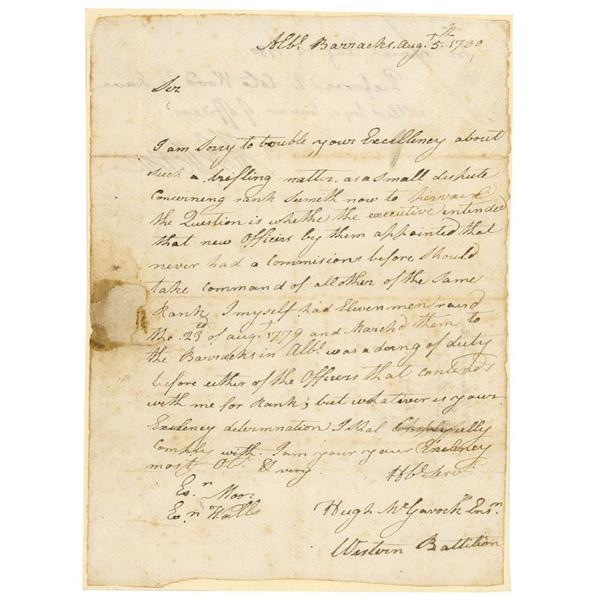 Albl. Barracks, Aug. 5th 1780,
Sir
I am sorry to touble your Excellency about
such a trifling matter, as a small despute
concerning rank sumeth now to
the Question is whethe the executive intended
that new Officers by them appointed that
never had a commisions before should
take command of all other of the same
Rank. I myself had Elwen men raisd
the 23d of augt. 1779 and March'd them to
the Barracks in Albl. was a doing of duty
before either of the Officers that contends
with me for Rank; but whatever is your
Exelency determnation I shal
comply with. I am your your Exelency
most Ob. & very Hble. Servt
Esn. Moor
Esn. Walls
Hugh McGavock Ensn.
Western Battilion